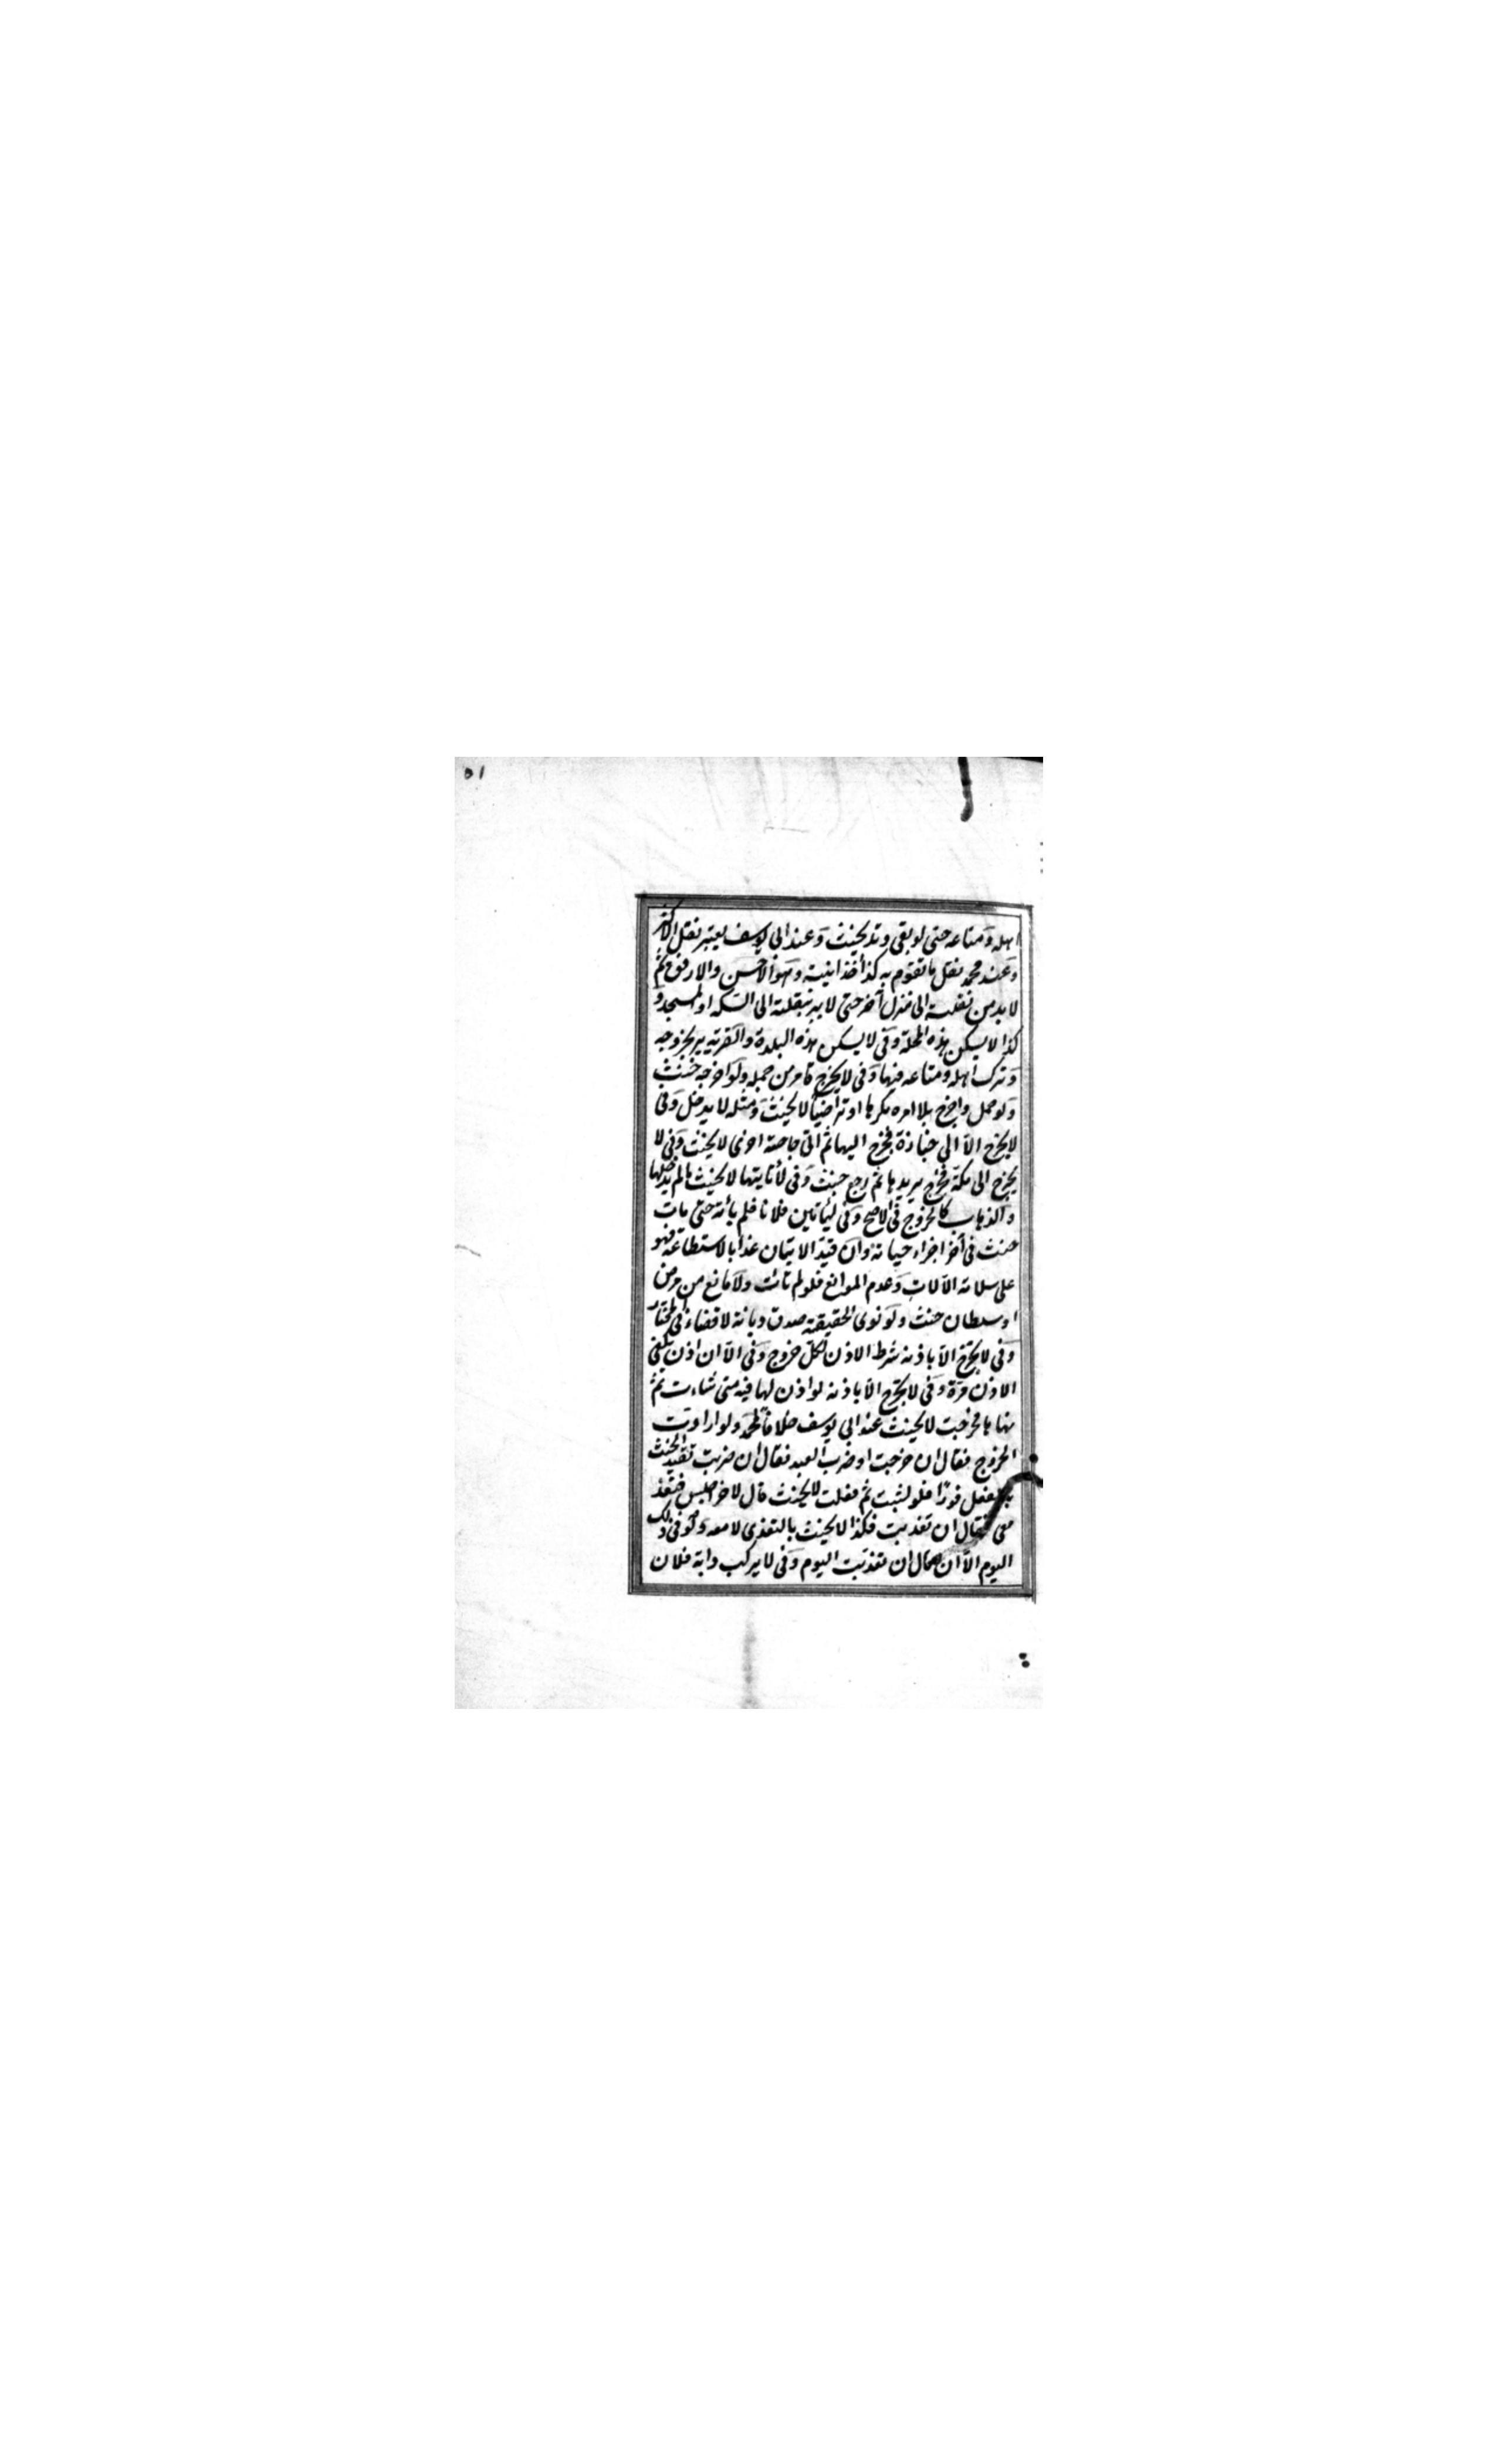 ٥١
اهله ومتاعه حتى لو بقى وتد يحنث وعند ابى يوسف يعتبر نقل الاكثر
وعند محمد نقل ما تقوم به كذاخذائيته وهو الاحسن والارفق ثم
لا بد من نقلته الى منزل آخر حتى لا يبر بنقلته الى السكة او المسجد و
كذا لا يسكن هذه المحلة وفى لا يسكن هذه البلدة والقرية يبر بخروجه
وترك اهله ومتاعه فيها وفى لا يخرج فامر من حمله ولو اخرجه حنث
ولو حمل واخرج بلا امره مكرها او تراضيا لا يحنث ومثله لا يدخل وفى
لا يخرج الا الى جنازة فخرج اليها ثم اتى حاجة اخرى لا يحنث وفى لا
يخرج الى مكة فخرج يريدها ثم رجع حنث وفى لا تأتيها لا يحنث ما لم يدخلها
والذهاب كالخروج فى الاصح وفى ليأتين فلانا فلم يأته حتى مات
حنث فى آخر اجزاء حياته وان قيد الاتيان غدا بالاستطاعة فهو
على سلامة الآلات وعدم الموانع فلو لم يأت ولا مانع من مرض
او سلطان حنث ولو نوى الحقيقة صدق ديانة لا قضاء فى المختار
وفى لا تخرج الا باذنه شرط الاذن لكل خروج وفى الا ان اذن يكفى
الاذن مرة وفى لا تخرج الا باذنه لو اذن لها فيه متى شاءت ثم
نهاها فخرجت لا يحنث عند ابى يوسف خلافا لمحمد ولو ارادت
الخروج فقال ان خرجت او ضرب العبد فقال ان ضربت تقيد الحنث
بالفعل فورا فلو لبثت ثم فعلت لا يحنث قال لاخر اجلس فتغد
معى فقال ان تغديت فكذا لا يحنث بالتغدى لا معه ولو فى ذلك
اليوم الا ان قال ان تغديت اليوم وفى لا يركب دابة فلان